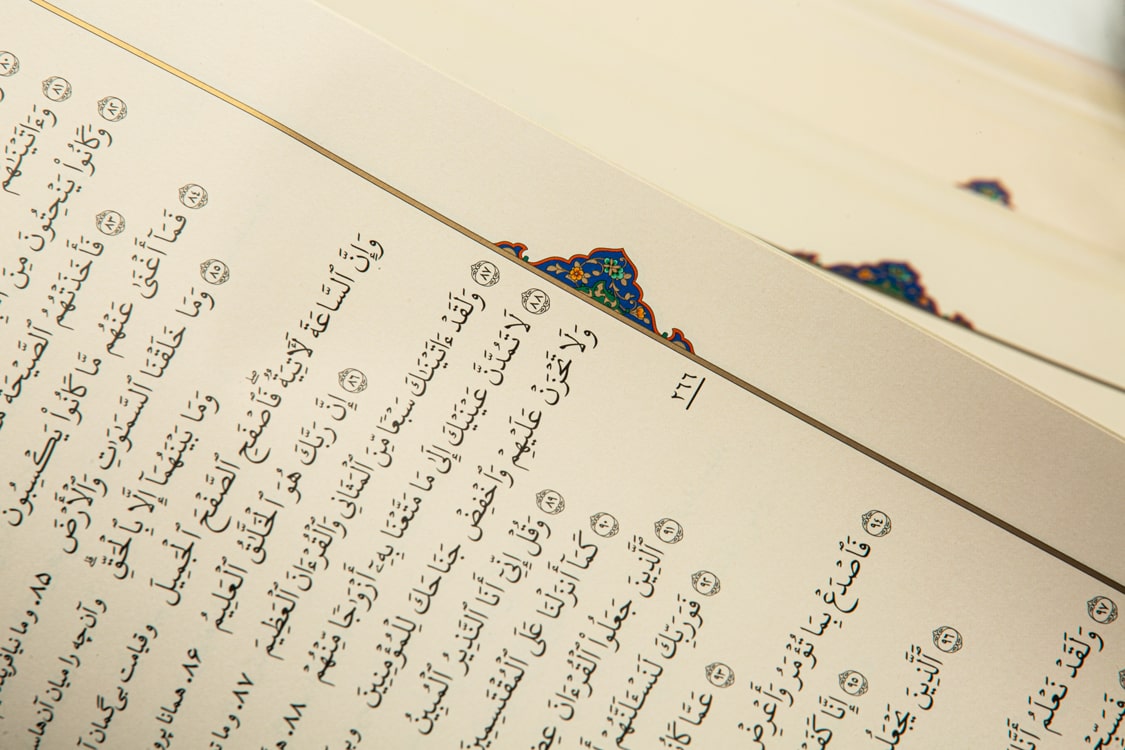 ٨٠
٨١ وَءَاتَيْنَٰهُمْ
٨٢ وَكَانُوا۟ يَنْحِتُونَ مِنَ
٨٣ فَأَخَذَتْهُمُ ٱلصَّيْحَةُ
٨٤ فَمَآ أَغْنَىٰ عَنْهُم مَّا كَانُوا۟ يَكْسِبُونَ
٨٥ وَمَا خَلَقْنَا ٱلسَّمَٰوَٰتِ وَٱلْأَرْضَ
وَمَا بَيْنَهُمَآ إِلَّا بِٱلْحَقِّ ۗ
وَإِنَّ ٱلسَّاعَةَ لَءَاتِيَةٌ ۖ فَٱصْفَحِ ٱلصَّفْحَ ٱلْجَمِيلَ
٨٦ إِنَّ رَبَّكَ هُوَ ٱلْخَلَّٰقُ ٱلْعَلِيمُ
٨٧ وَلَقَدْ ءَاتَيْنَٰكَ سَبْعًا مِّنَ ٱلْمَثَانِى وَٱلْقُرْءَانَ ٱلْعَظِيمَ
٨٨ لَا تَمُدَّنَّ عَيْنَيْكَ إِلَىٰ مَا مَتَّعْنَا بِهِۦٓ أَزْوَٰجًا مِّنْهُمْ
وَلَا تَحْزَنْ عَلَيْهِمْ وَٱخْفِضْ جَنَاحَكَ لِلْمُؤْمِنِينَ
٨٩ وَقُلْ إِنِّىٓ أَنَا ٱلنَّذِيرُ ٱلْمُبِينُ
٩٠ كَمَآ أَنزَلْنَا عَلَى ٱلْمُقْتَسِمِينَ
٩١ ٱلَّذِينَ جَعَلُوا۟ ٱلْقُرْءَانَ عِضِ
٩٢ فَوَرَبِّكَ لَنَسْـَٔلَنَّهُمْ
٩٣ عَمَّا كَا
٩٤ فَٱصْدَعْ بِمَا تُؤْمَرُ وَأَعْرِضْ
٩٥ إِنَّا كَفَ
٩٦ ٱلَّذِينَ يَجْعَلُ
٩٧ وَلَقَدْ نَعْلَمُ أَنَّ
فَسَبِّحْ
٢٦٦
٨٥. و ما نیافرید
و آن چه را میان آن‌هاست
و قیامت بی گمان آ
٨٦. همانا پرو
٨٧. و ما
٨٨.